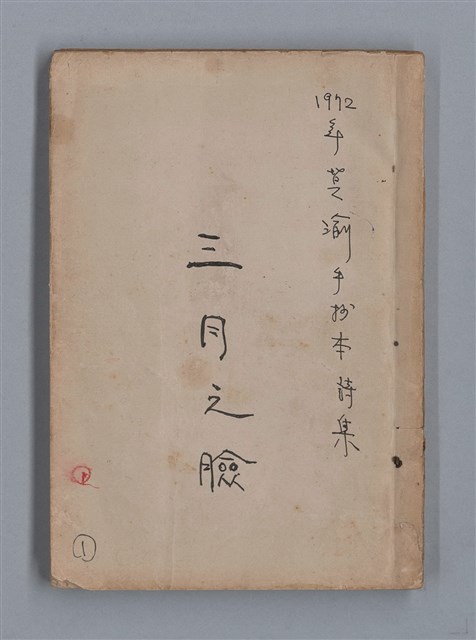 1972年莫渝手抄本詩集
三月之臉
1